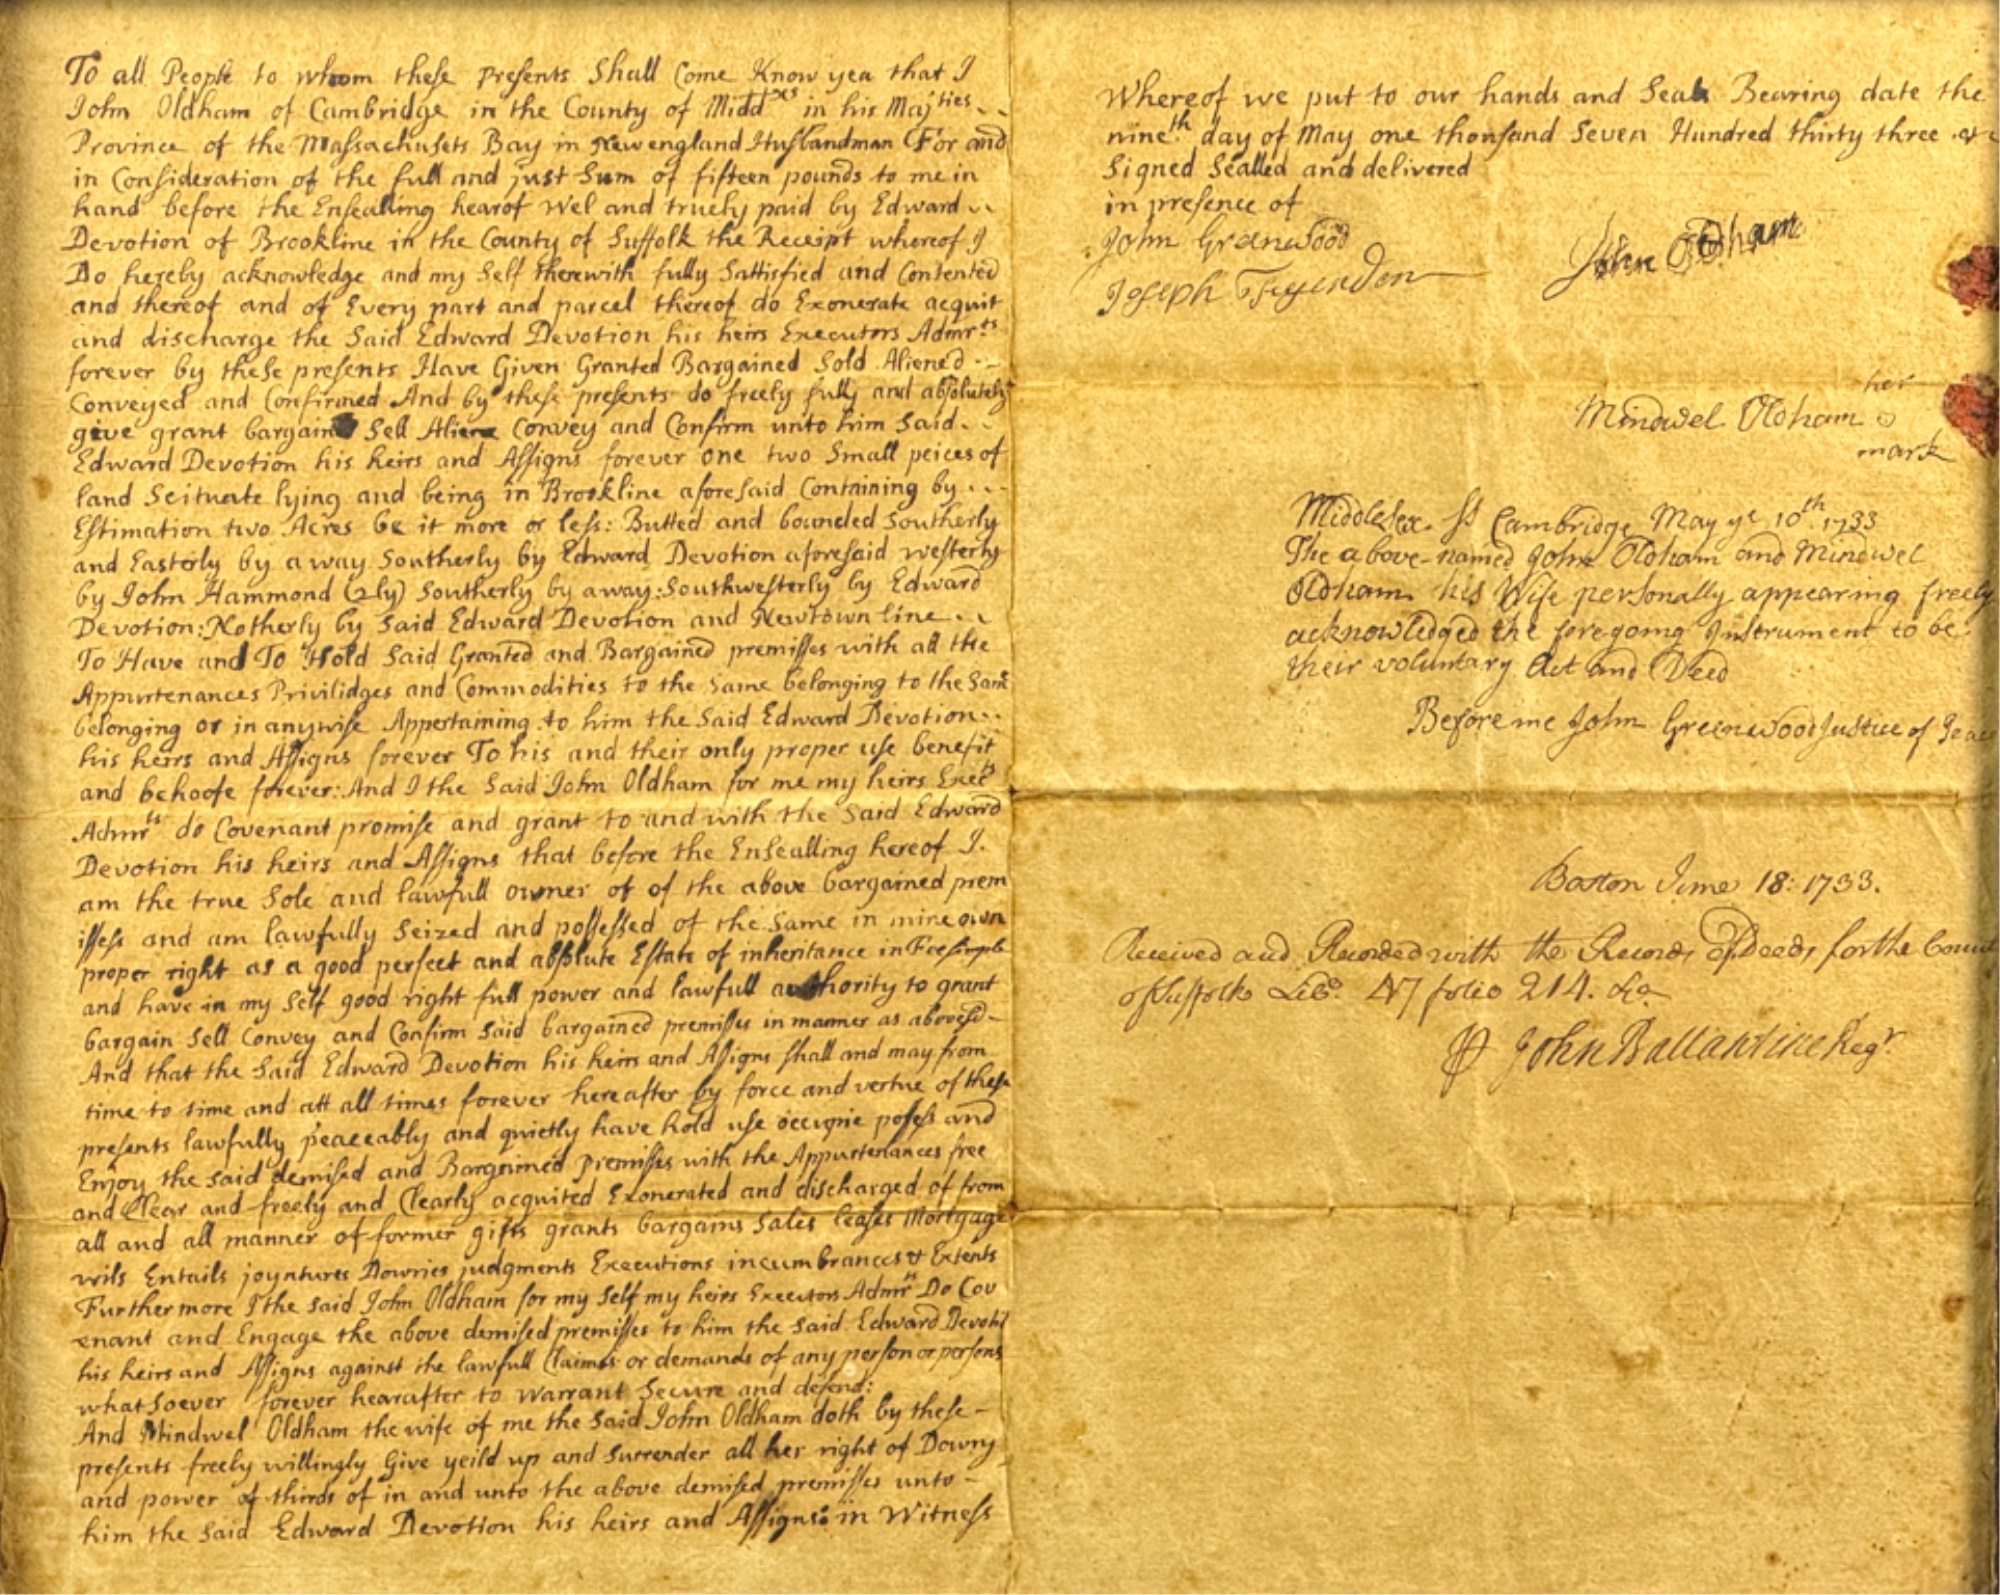 To all People to whom these presents Shall Come Know yea that I
John Oldham of Cambridge in the County of Midd^xs in his Maj^ties
Province of the Massachusets Bay in Newengland Husbandman (For and
in Consideration of the full and just Sum of fifteen pounds to me in
hand before the Ensealling hearof Wel and truely paid by Edward
Devotion of Brookline in the County of Suffolk the Receipt whereof I
Do hereby acknowledge and my Self therewith fully Sattisfied and Contented
and thereof and of Every part and parcel thereof do Exonerate acquit
and discharge the Said Edward Devotion his heirs Executors Admr^ts
forever by these presents Have Given Granted Bargained Sold Aliened
Conveyed and Confirmed And by these presents do freely fully and absolutely
give grant bargain Sell Aliene Convey and Confirm unto him Said
Edward Devotion his heirs and Assigns forever one two Small peices of
land Scituate lying and being in Brookline aforesaid Containing by
Estimation two Acres be it more or less: Butted and bounded Southerly
and Easterly by a way Southerly by Edward Devotion aforesaid westerly
by John Hammond (2ly) Southerly by a way: Southwesterly by Edward
Devotion: Notherly by Said Edward Devotion and Newtown line
To Have and To Hold Said Granted and Bargained premisses with all the
Appurtenances Privilidges and Commodities to the Same belonging to the Same
belonging or in anywise Appertaining to him the Said Edward Devotion
his heirs and Assigns forever To his and their only proper use benefit
and behoofe forever: And I the Said John Oldham for me my heirs Exec^ts
Admr^ts do Covenant promise and grant to and with the Said Edward
Devotion his heirs and Assigns that before the Ensealling hereof I.
am the true Sole and lawfull owner of of the above bargained prem
isses and am lawfully Seized and possessed of the Same in mine own
proper right as a good perfect and absolute Estate of inheritance in Fee simple
and have in my Self good right full power and lawfull authority to grant
bargain Sell Convey and Confirm Said bargained premisses in manner as abovesd
And that the Said Edward Devotion his heirs and Assigns shall and may from
time to time and att all times forever hereafter by force and vertue of these
presents lawfully peaceably and quietly have hold use occupie posess and
Enjoy the said demised and Bargained premisses with the Appurtenances free
and Clear and freely and Clearly acquited Exonerated and discharged of from
all and all manner of former gifts grants bargains Sales leases Mortgage
wils Entails joyntures Dowries judgments Executions incumbrances & Extents
Furthermore I the said John Oldham for my Self my heirs Executors Admr^ts Do Cov
enant and Engage the above demised premisses to him the Said Edward Devotion
his heirs and Assigns against the lawfull Claims or demands of any person or persons
whatsoever forever hearafter to warrant Secure and defend:
And Mindwel Oldham the wife of me the Said John Oldham doth by these
presents freely willingly Give yeild up and Surrender all her right of Dowry
and power of thirds of in and unto the above demised premisses unto
him the Said Edward Devotion his heirs and Assigns: in Witness
Whereof we put to our hands and Seals Bearing date the
nine^th day of May one thousand Seven Hundred thirty three &c
Signed Sealled and delivered
in presence of
John Greenwood
John Oldham
Joseph
her
Mindwel Oldham
mark
Middlesex. Ss Cambridge May ye 10^th 1733
The above-named John Oldham and Mindwel
Oldham his Wife personally appearing freely
acknowledged the foregoing Instrument to be
their voluntary Act and Deed
Before me John Greenwood Justice of Peace
Boston June 18: 1733.
Received and Recorded with the Records of Deeds, for the Count
of Suffolk Lib^o 47 folio 214. &c
John Ballantine Reg^r.